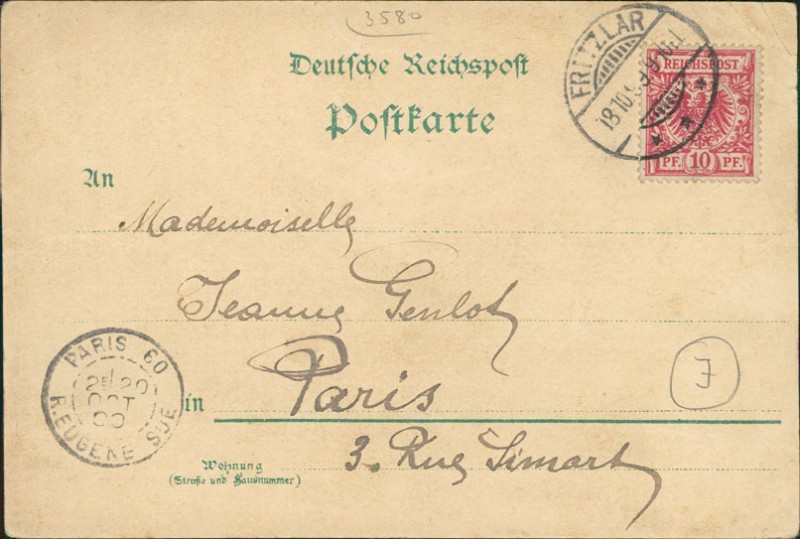 3580
Deutsche Reichspost
Postkarte
FRITZLAR
18.10.99 9-10V.
REICHSPOST
PF. 10 PF.
An
Mademoiselle
Jeanne Genlot
PARIS 60
20
OCT
99
R. EUGENE SUE
J
in Paris
Wohnung
(Straße und Hausnummer)
3. Rue Simart